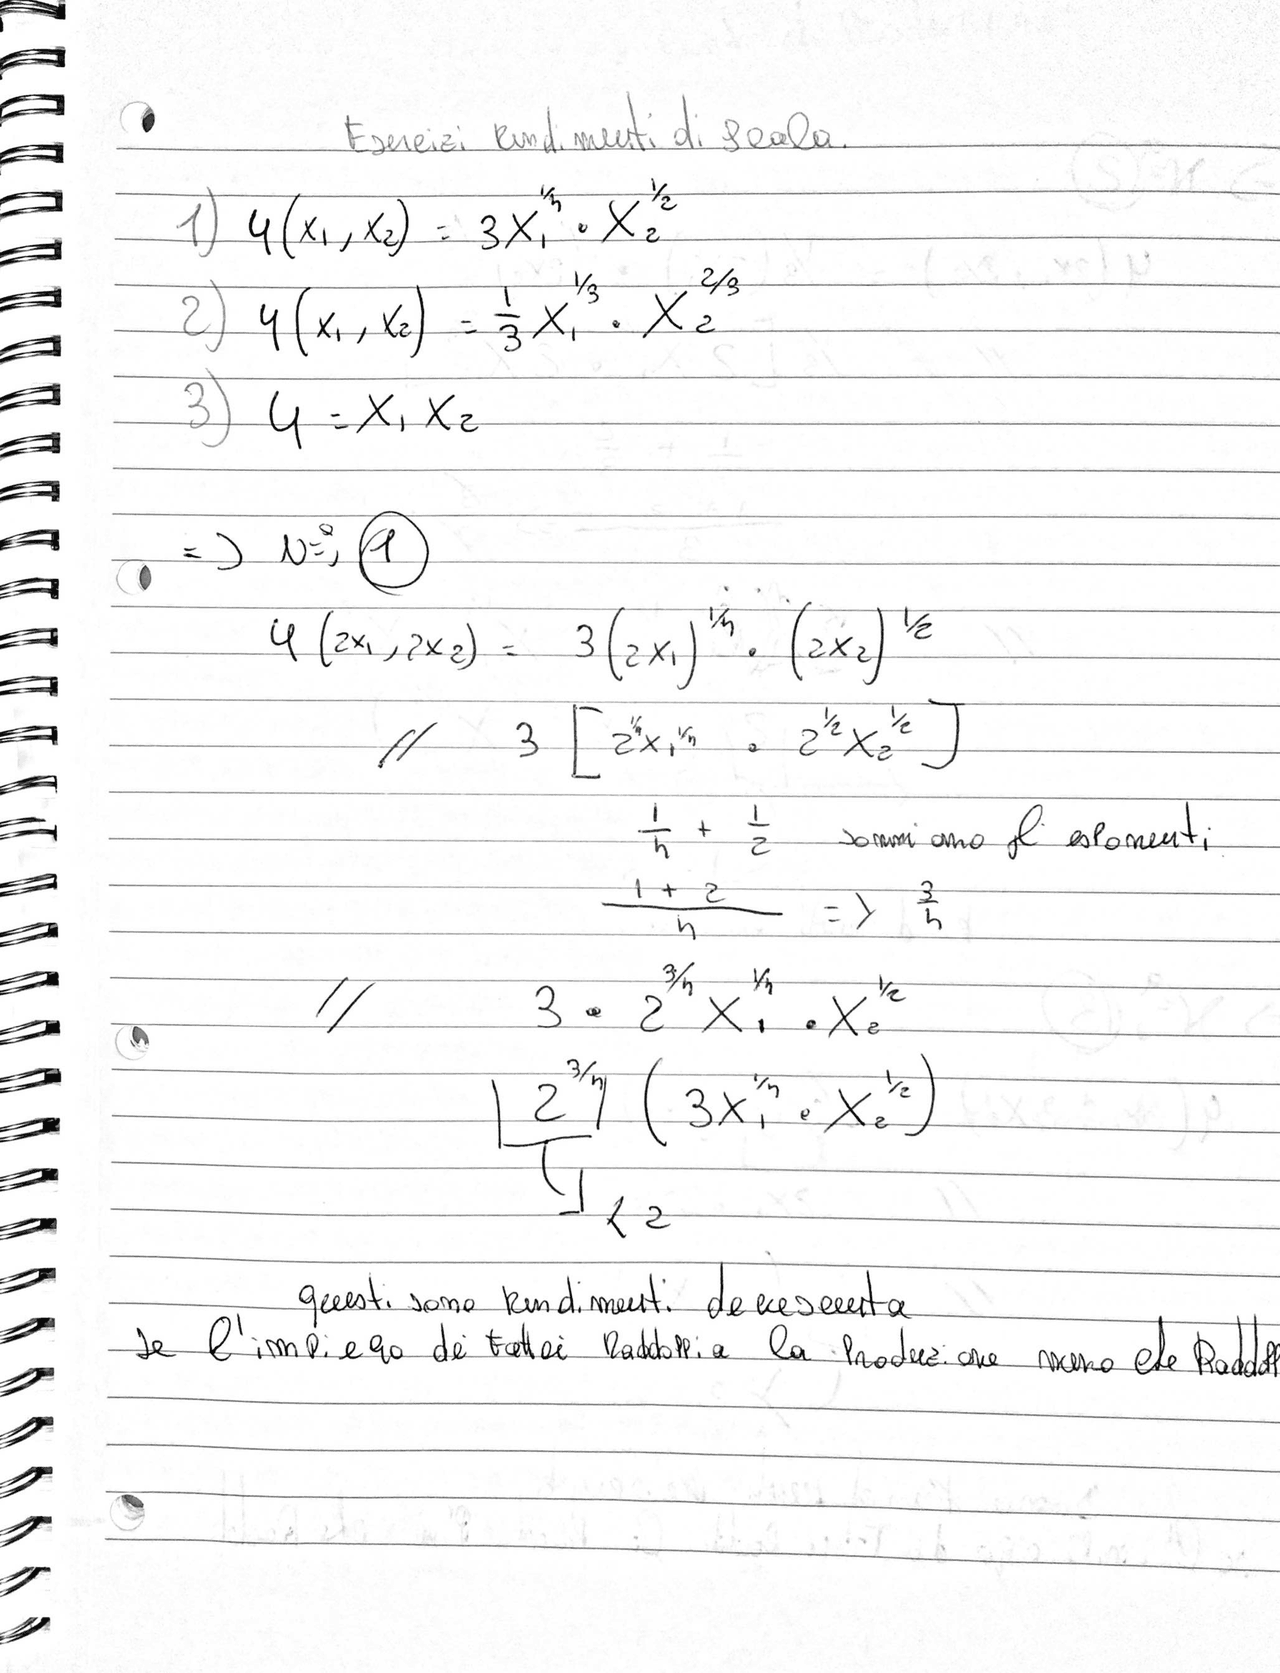 Esercizi Rendimenti di Scala.
1) y(x₁, x₂) = 3x₁^1/4 · x₂^1/2
2) y(x₁, x₂) = 1/3 x₁^1/3 · x₂^2/3
3) y = x₁ x₂
=> N° 1
y(2x₁, 2x₂) = 3(2x₁)^1/4 · (2x₂)^1/2
// 3 [2^1/4 x₁^1/4 · 2^1/2 x₂^1/2]
1/4 + 1/2 sommiamo gli esponenti
(1 + 2)/4 => 3/4
// 3 · 2^3/4 x₁^1/4 · x₂^1/2
2^3/4 (3x₁^1/4 · x₂^1/2)
< 2
questi sono Rendimenti
se l'impiego dei fattori Raddoppia la Produzione meno che Raddopp